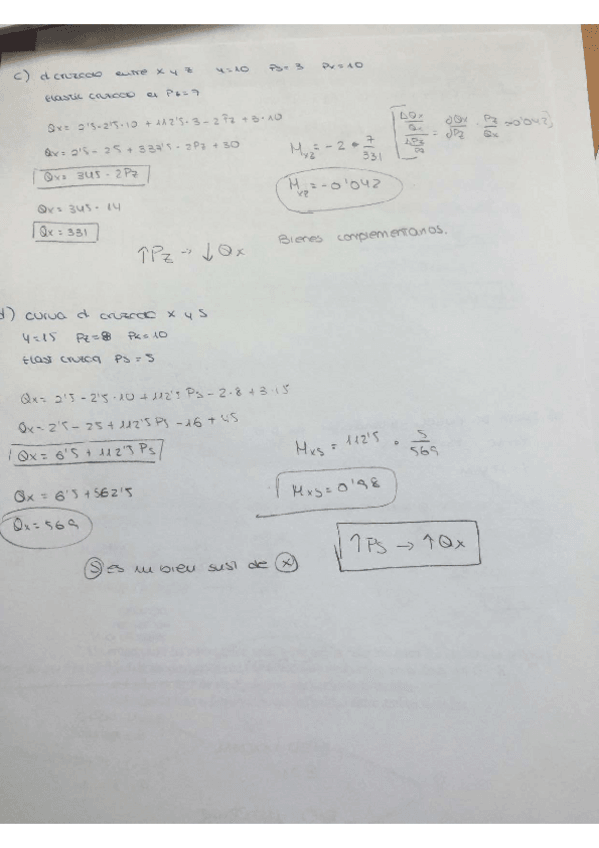 c) d cruzada entre x y z y=10 Ps=3 Px=10
Elastic cruzada en Pz=7
Qx= 2'5-2'5·10 + 112'5·3-2Pz +3·10
Qx= 2'5 - 25 + 337'5 - 2Pz + 30
Qx= 345 - 2Pz
Qx= 345 - 14
Qx = 331
Mxz = -2 · 7/331
Mxz = -0'042
↑Pz → ↓Qx
Bienes complementarios.
d) curva d cruzada x y s
y=15 Pz=8 Px=10
Elast cruzada Ps = 5
Qx= 2'5-2'5·10+112'5 Ps-2·8+3·15
Qx= 2'5-25+112'5 Ps -16 + 45
Qx = 6'5 + 112'5 Ps
Qx = 6'5 + 562'5
Qx = 569
Mxs = 112'5 · 5/569
Mxs = 0'98
↑Ps → ↑Qx
S es un bien susi de x